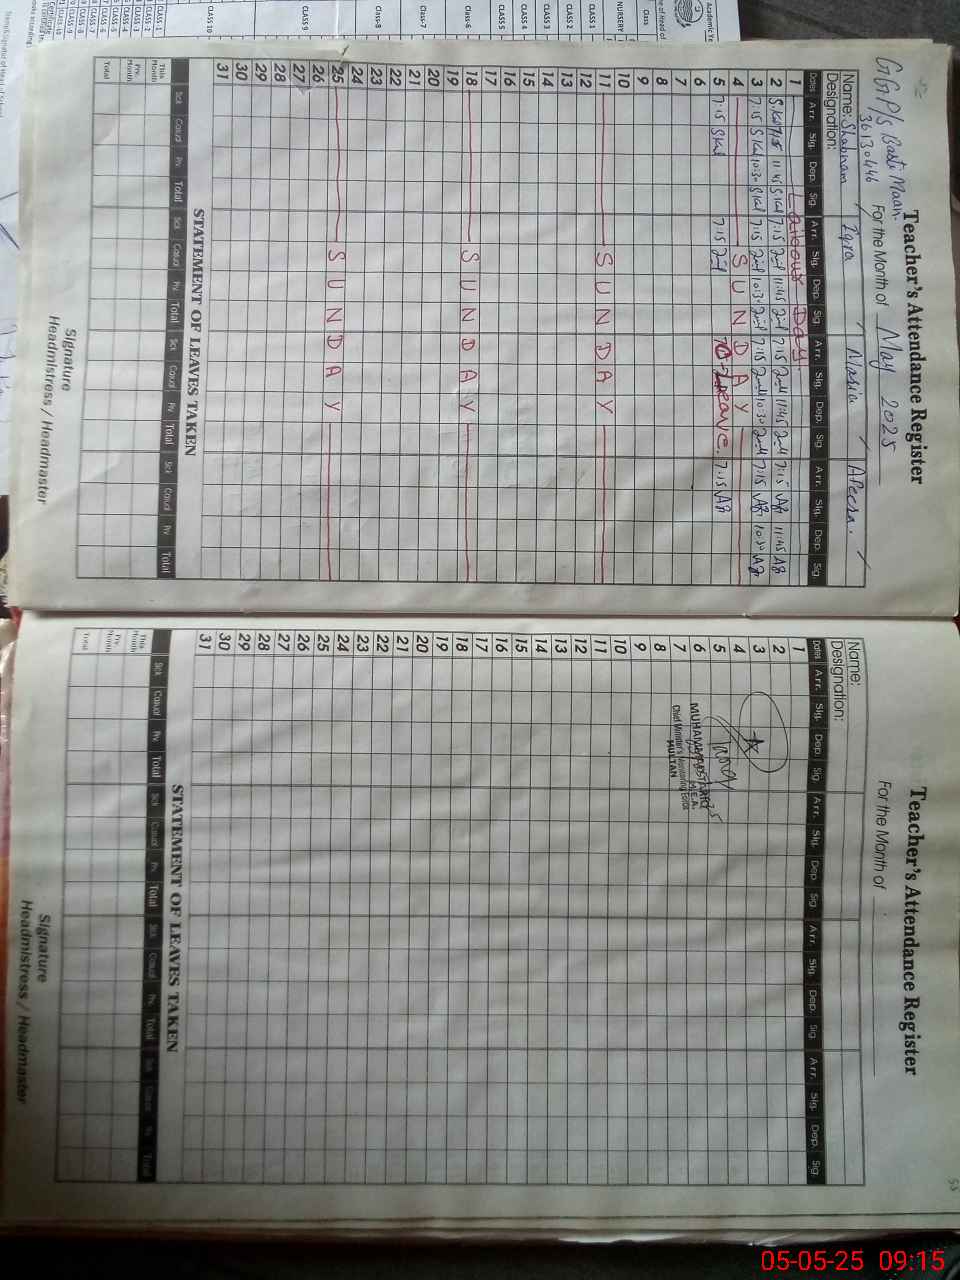 Teacher's Attendance Register
GGP/s Basti Maan.
36130446
For the Month of May 2025
Name: Shabnam Iqra Nasia Afeera.
Designation:
Dates Arr. Sig. Dep. Sig. Arr. Sig. Dep. Sig. Arr. Sig. Dep. Sig. Arr. Sig. Dep. Sig.
1 Labour Day.
2 7:15 11:45 7:15 11:45 7:15 11:45 7:15 11:45
3 7:15 10:30 7:15 10:30 7:15 10:30 7:15 10:30
4 SUNDAY
5 7:15 7:15 C-Leave. 7:15
6
7
8
9
10
11 SUNDAY
12
13
14
15
16
17
18 SUNDAY
19
20
21
22
23
24
25 SUNDAY
26
27
28
29
30
31
STATEMENT OF LEAVES TAKEN
Sick Casual Prv. Total Sick Casual Prv. Total Sick Casual Prv. Total Sick Casual Prv. Total
This Month
Prv. Month
Total
Signature
Headmistress / Headmaster
Teacher's Attendance Register
For the Month of
Name:
Designation:
Dates Arr. Sig. Dep. Sig. Arr. Sig. Dep. Sig. Arr. Sig. Dep. Sig. Arr. Sig. Dep. Sig.
1
2
3
4
5
6
7
8
9
10
11
12
13
14
15
16
17
18
19
20
21
22
23
24
25
26
27
28
29
30
31
MUHAMMAD TARIQ
M.E.A.
Chief Minister's Monitoring Force
MULTAN
STATEMENT OF LEAVES TAKEN
Sick Casual Prv. Total Sick Casual Prv. Total Sick Casual Prv. Total Sick Casual Prv. Total
This Month
Prv. Month
Total
Signature
Headmistress / Headmaster
53
Class
NURSERY
CLASS 1
CLASS 2
CLASS 3
CLASS 4
CLASS 5
Class-6
Class-7
Class-8
CLASS 9
CLASS 10
05-05-25 09:15